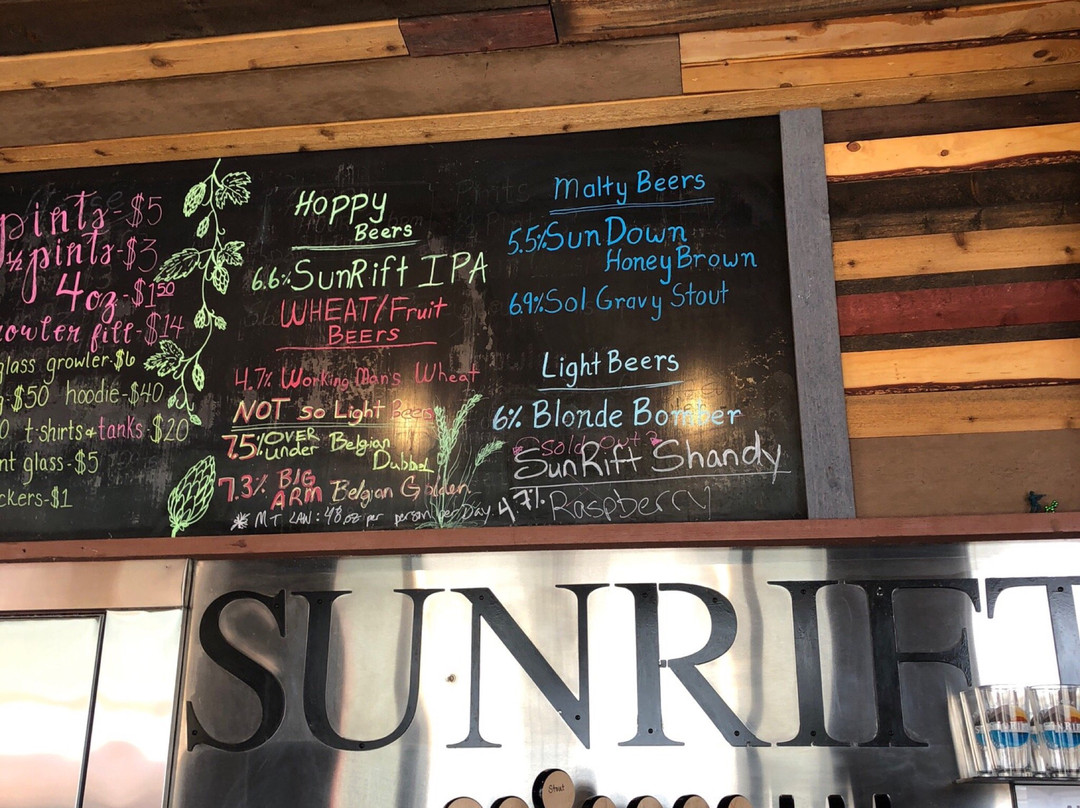 pints-$5
½pints-$3
4oz-$1.50
growler fill-$14
glass growler-$6
-$50 hoodie-$40
t-shirts+tanks-$20
nt glass-$5
ckers-$1
Hoppy
Beers
6.6% SunRift IPA
WHEAT/Fruit
BEERS
4.7% Working Man's Wheat
NOT so Light Beers
7.5% OVER
under Belgian
Dubbel
7.3% BIG
ARM Belgian Golden
* MT LAW: 48 oz per person per Day.
Malty Beers
5.5% SunDown
Honey Brown
6.9% Sol Gravy Stout
Light Beers
6% Blonde Bomber
Sold out
SunRift Shandy
4.7% Raspberry
SUNRIFT
Stout